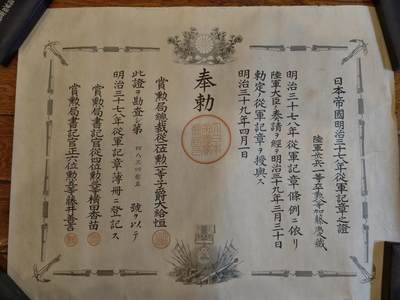 日本帝國明治三十七八年從軍記章之證
陸軍歩兵一等卒勲八等加藤慶藏
明治三十七八年從軍記章條例ニ依リ
陸軍大臣ノ奏請ヲ經テ明治三十九年三月三十日
勅定ノ從軍記章ヲ授與ス
明治三十九年四月一日
奉勅
賞勲局總裁從二位勲一等子爵大給恒
此證ヲ勘査シ第 號ヲ以テ
明治三十七八年從軍記章簿册ニ登記ス
賞勲局書記官從四位勲三等横田香苗
賞勲局書記官正六位勲五等藤井善言